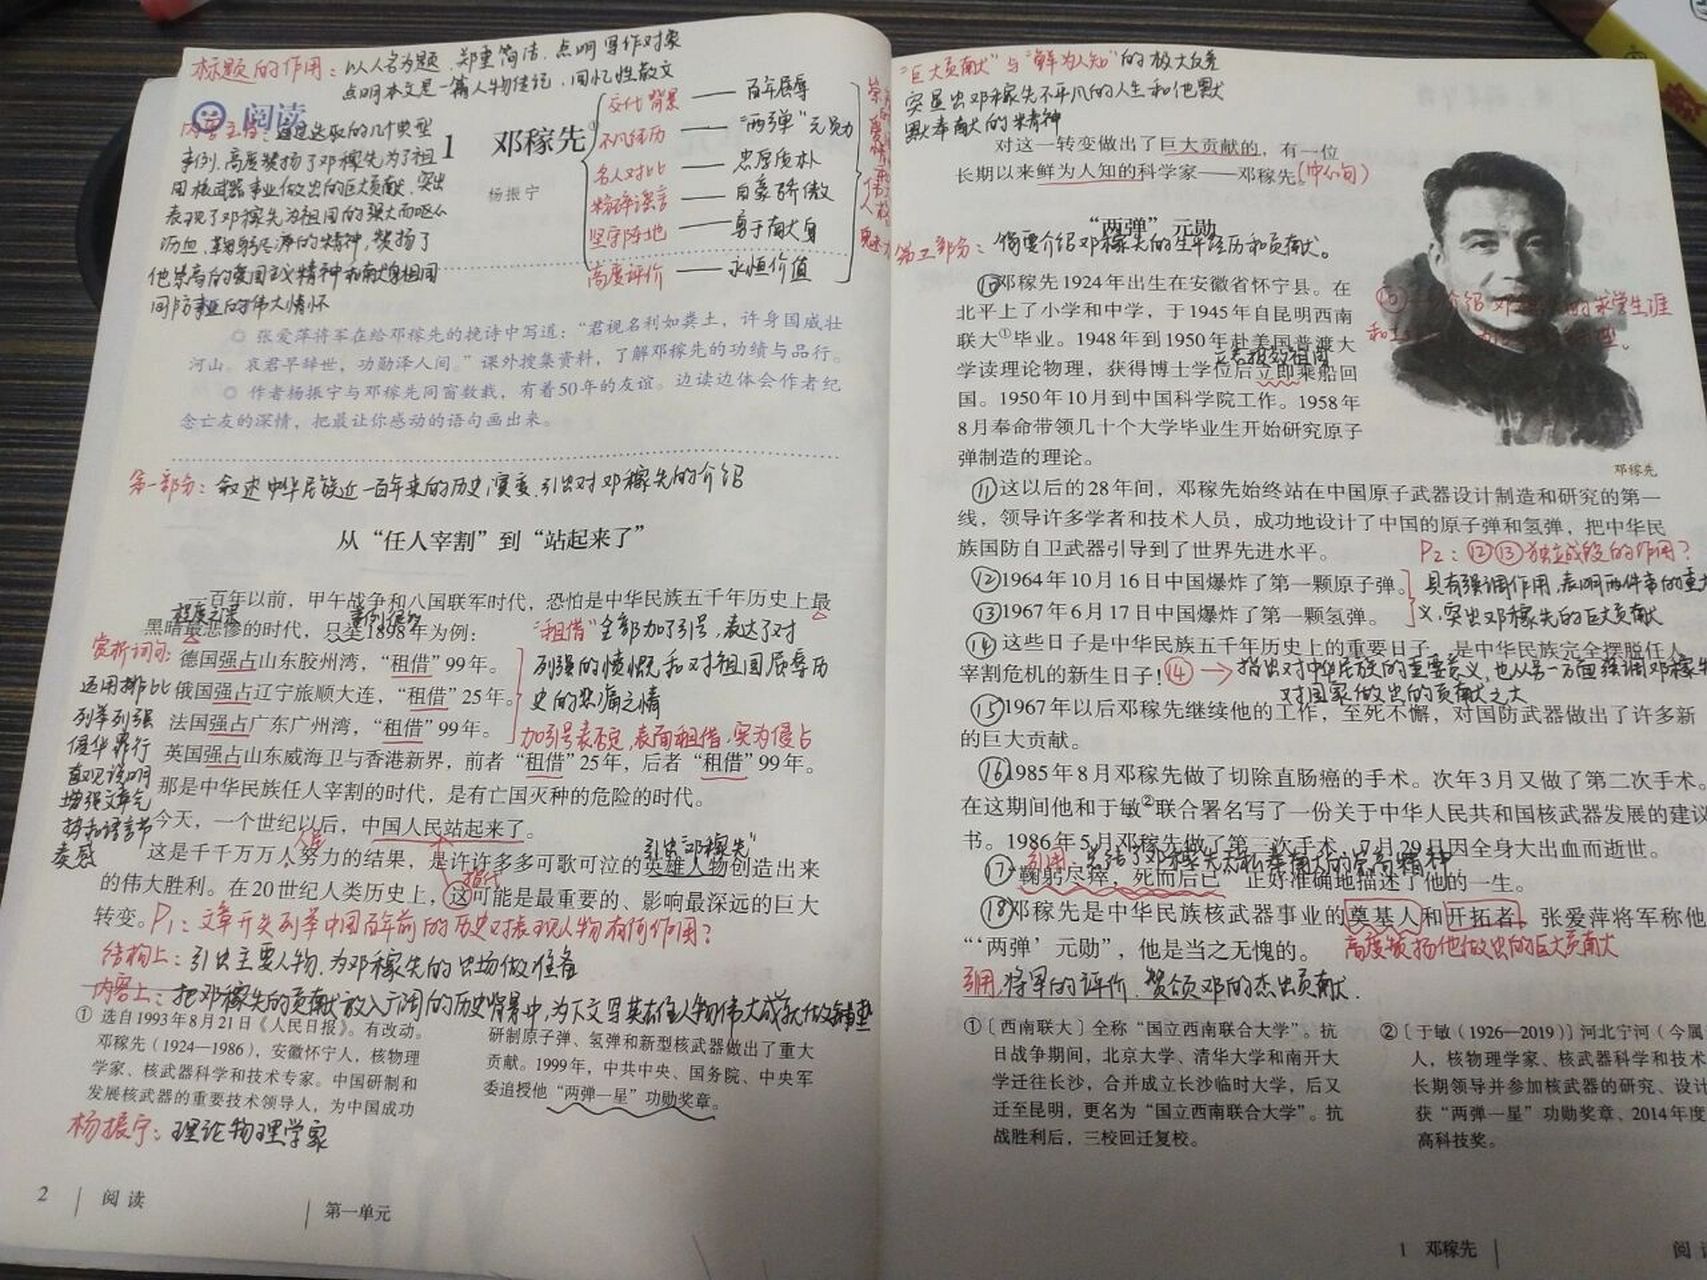 标题的作用：以人名为题，郑重简洁，点明写作对象
点明本文是一篇人物传记、回忆性散文
阅读
内容主旨：通过选取的几个典型
事例，高度赞扬了邓稼先为了祖
国核武器事业做出的巨大贡献，突出
表现了邓稼先为祖国的强大而呕心
沥血、鞠躬尽瘁的精神，赞扬了
他崇高的爱国主义精神和献身祖国
国防事业的伟大情怀
1 邓稼先①
杨振宁
交代背景——百年屈辱
不凡经历——“两弹”元勋
名人对比——忠厚质朴
粉碎谣言——自豪骄傲
坚守阵地——身于南大身
高度评价——永恒价值
◎ 张爱萍将军在给邓稼先的挽诗中写道：“君视名利如粪土，许身国威壮
河山。哀君早辞世，功勋泽人间。”课外搜集资料，了解邓稼先的功绩与品行。
◎ 作者杨振宁与邓稼先同窗数载，有着50年的友谊。边读边体会作者纪
念亡友的深情，把最让你感动的语句画出来。
第一部分：叙述中华民族近一百年来的历史演变，引出对邓稼先的介绍
从“任人宰割”到“站起来了”
一百年以前，甲午战争和八国联军时代，恐怕是中华民族五千年历史上最
程度之深
黑暗最悲惨的时代，只举1898年为例：
德国强占山东胶州湾，“租借”99年。
俄国强占辽宁旅顺大连，“租借”25年。
法国强占广东广州湾，“租借”99年。
英国强占山东威海卫与香港新界，前者“租借”25年，后者“租借”99年。
赏析词句：
运用排比
列举列强
侵华罪行
直观说明
增强文章气
势和语言节
奏感
“租借”全部加了引号，表达了对
列强的愤慨和对祖国屈辱历
史的悲痛之情
加引号表否定，表面租借，实为侵占
那是中华民族任人宰割的时代，是有亡国灭种的危险的时代。
今天，一个世纪以后，中国人民站起来了。
人民
引出“邓稼先”
这是千千万万人努力的结果，是许许多多可歌可泣的英雄人物创造出来
指代
的伟大胜利。在20世纪人类历史上，这可能是最重要的、影响最深远的巨大
转变。
P1：文章开头列举中国百年前的历史对表现人物有何作用？
结构上：引出主要人物，为邓稼先的出场做准备
内容上：把邓稼先的贡献放入广阔的历史背景中，为下文写英雄人物伟大成就做铺垫
① 选自1993年8月21日《人民日报》。有改动。
邓稼先（1924—1986），安徽怀宁人，核物理
学家、核武器科学和技术专家。中国研制和
发展核武器的重要技术领导人，为中国成功
研制原子弹、氢弹和新型核武器做出了重大
贡献。1999年，中共中央、国务院、中央军
委追授他“两弹一星”功勋奖章。
杨振宁：理论物理学家
2 阅读
第一单元
“巨大贡献”与“鲜为人知”的极大反差
突显出邓稼先不平凡的人生和他默
默奉献的精神
对这一转变做出了巨大贡献的，有一位
长期以来鲜为人知的科学家——邓稼先。（中心句）
“两弹”元勋
第二部分：简要介绍邓稼先的生平经历和贡献。
⑩邓稼先1924年出生在安徽省怀宁县。在
北平上了小学和中学，于1945年自昆明西南
联大①毕业。1948年到1950年赴美国普渡大
立志报效祖国
学读理论物理，获得博士学位后立即乘船回
国。1950年10月到中国科学院工作。1958年
8月奉命带领几十个大学毕业生开始研究原子
弹制造的理论。
邓稼先
⑪这以后的28年间，邓稼先始终站在中国原子武器设计制造和研究的第一
线，领导许多学者和技术人员，成功地设计了中国的原子弹和氢弹，把中华民
族国防自卫武器引导到了世界先进水平。
P2：⑫⑬独立成段的作用？
⑫1964年10月16日中国爆炸了第一颗原子弹。
⑬1967年6月17日中国爆炸了第一颗氢弹。
具有强调作用，表明两件事的重大
义，突出邓稼先的巨大贡献
⑭这些日子是中华民族五千年历史上的重要日子，是中华民族完全摆脱任人
宰割危机的新生日子！
⑭→指出对中华民族的重要意义，也从另一方面强调邓稼先
对国家做出的贡献之大
⑮1967年以后邓稼先继续他的工作，至死不懈，对国防武器做出了许多新
的巨大贡献。
⑯1985年8月邓稼先做了切除直肠癌的手术。次年3月又做了第二次手术。
在这期间他和于敏②联合署名写了一份关于中华人民共和国核武器发展的建议
书。1986年5月邓稼先做了第三次手术，7月29日因全身大出血而逝世。
⑰“鞠躬尽瘁，死而后已”正好准确地描述了他的一生。
⑱邓稼先是中华民族核武器事业的奠基人和开拓者。张爱萍将军称他
“‘两弹’元勋”，他是当之无愧的。
高度赞扬他做出的巨大贡献
引用将军的评价，赞颂邓的杰出贡献．
①〔西南联大〕全称“国立西南联合大学”。抗
日战争期间，北京大学、清华大学和南开大
学迁往长沙，合并成立长沙临时大学，后又
迁至昆明，更名为“国立西南联合大学”。抗
战胜利后，三校回迁复校。
②〔于敏（1926—2019）〕河北宁河（今属
人，核物理学家、核武器科学和技术
长期领导并参加核武器的研究、设计
获“两弹一星”功勋奖章、2014年度
高科技奖。
1 邓稼先
阅